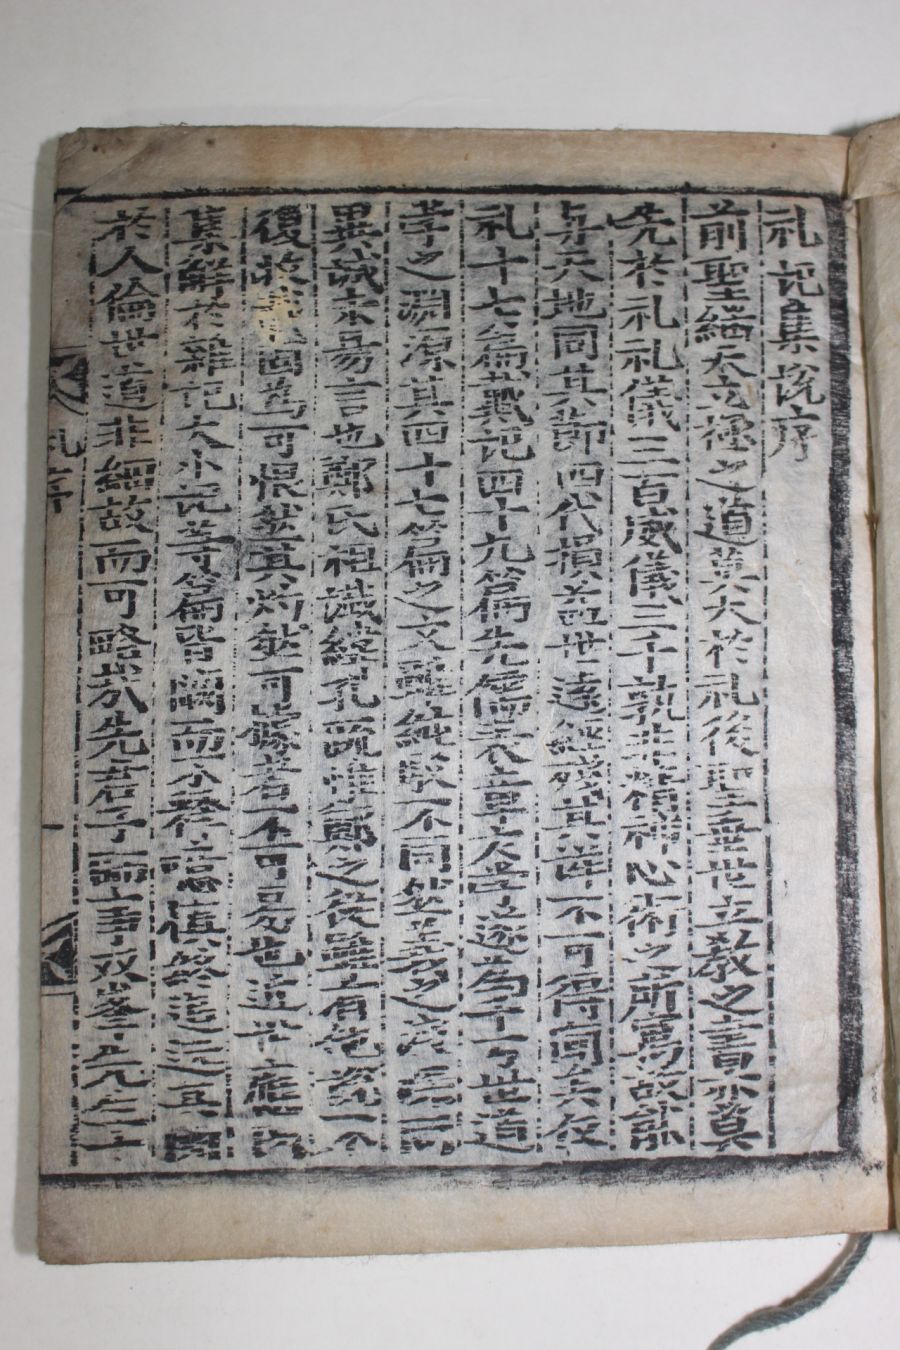 礼記集說序
前聖繼天立極之道莫大於礼後聖垂世立敎之書亦莫
先於礼礼儀三百威儀三千孰非精神心術之所寓故能
与天地同其節四代損益世遠經殘其詳不可得聞矣仪
礼十七篇戴記四十九篇先儒表章大学遂為千万世道
孝之淵源其四十七篇之文雖純駁不同然義之浅深同
異誠未易言也鄭氏祖讖緯孔疏惟鄭之從雖有他說不
復收固為可恨然其灼然可據者不可易也近世應氏
集解於雜記大小記等篇皆闕而不釋噫慎終追遠其関
於人倫世道非細故而可略哉先君子師事双峯先生十
礼序